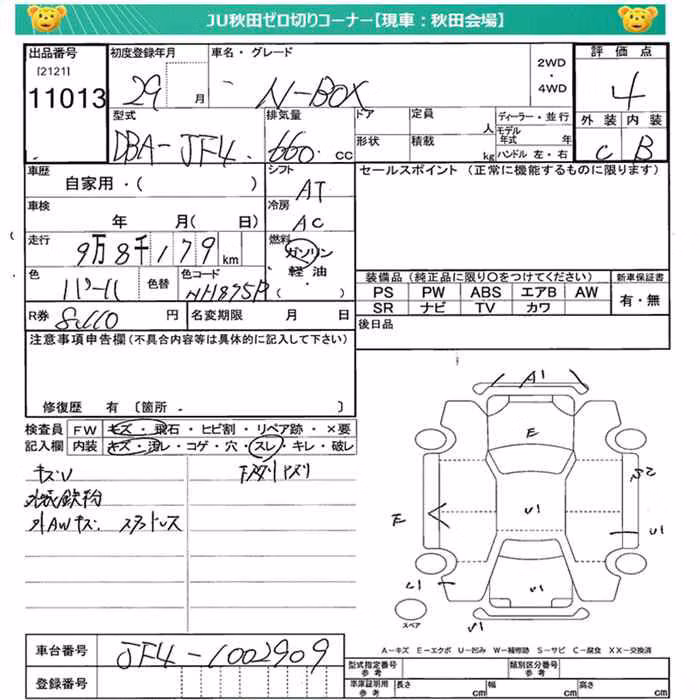 JU秋田ゼロ切りコーナー【現車：秋田会場】
出品番号 初度登録年月 車名・グレード 評価点
［2121］ 2WD
11013 29 月 N-BOX ・ 4
4WD
型式 排気量 ドア 定員 ディーラー・並行 外装 内装
人 モデル年式 年
DBA-JF4 660 cc 形状 積載 kg ハンドル 左・右 C B
車歴 シフト セールスポイント（正常に機能するものに限ります）
自家用・（ ） AT
車検 冷房
年 月（ 日） AC
走行 燃料
9万8千179 km ガソリン
軽油
色 色替 色コード （ ） 装備品（純正品に限り〇をつけてください） 新車保証書
パール NH875P PS PW ABS エアB AW 有・無
SR ナビ TV カワ
R券 8110 円 名変期限 月 日 後日品
注意事項申告欄（不具合内容等は具体的に記入して下さい）
修復歴 有〔箇所 〕
検査員 FW キズ・飛石・ヒビ割・リペア跡・×要
記入欄 内装 キズ・汚レ・コゲ・穴・スレ・キレ・破レ
キズU
鉄粉
AWキズ スタッドレス
A1
E
S2
U1
E
U1
U1
U1
U1
スペア
A－キズ E－エクボ U－凹み W－補修跡 S－サビ C－腐食 XX－交換済
車台番号 JF4-1002909
型式指定番号 参考 類別区分番号 参考
登録番号 車庫証明用 参考 長さ cm 幅 cm 高さ cm